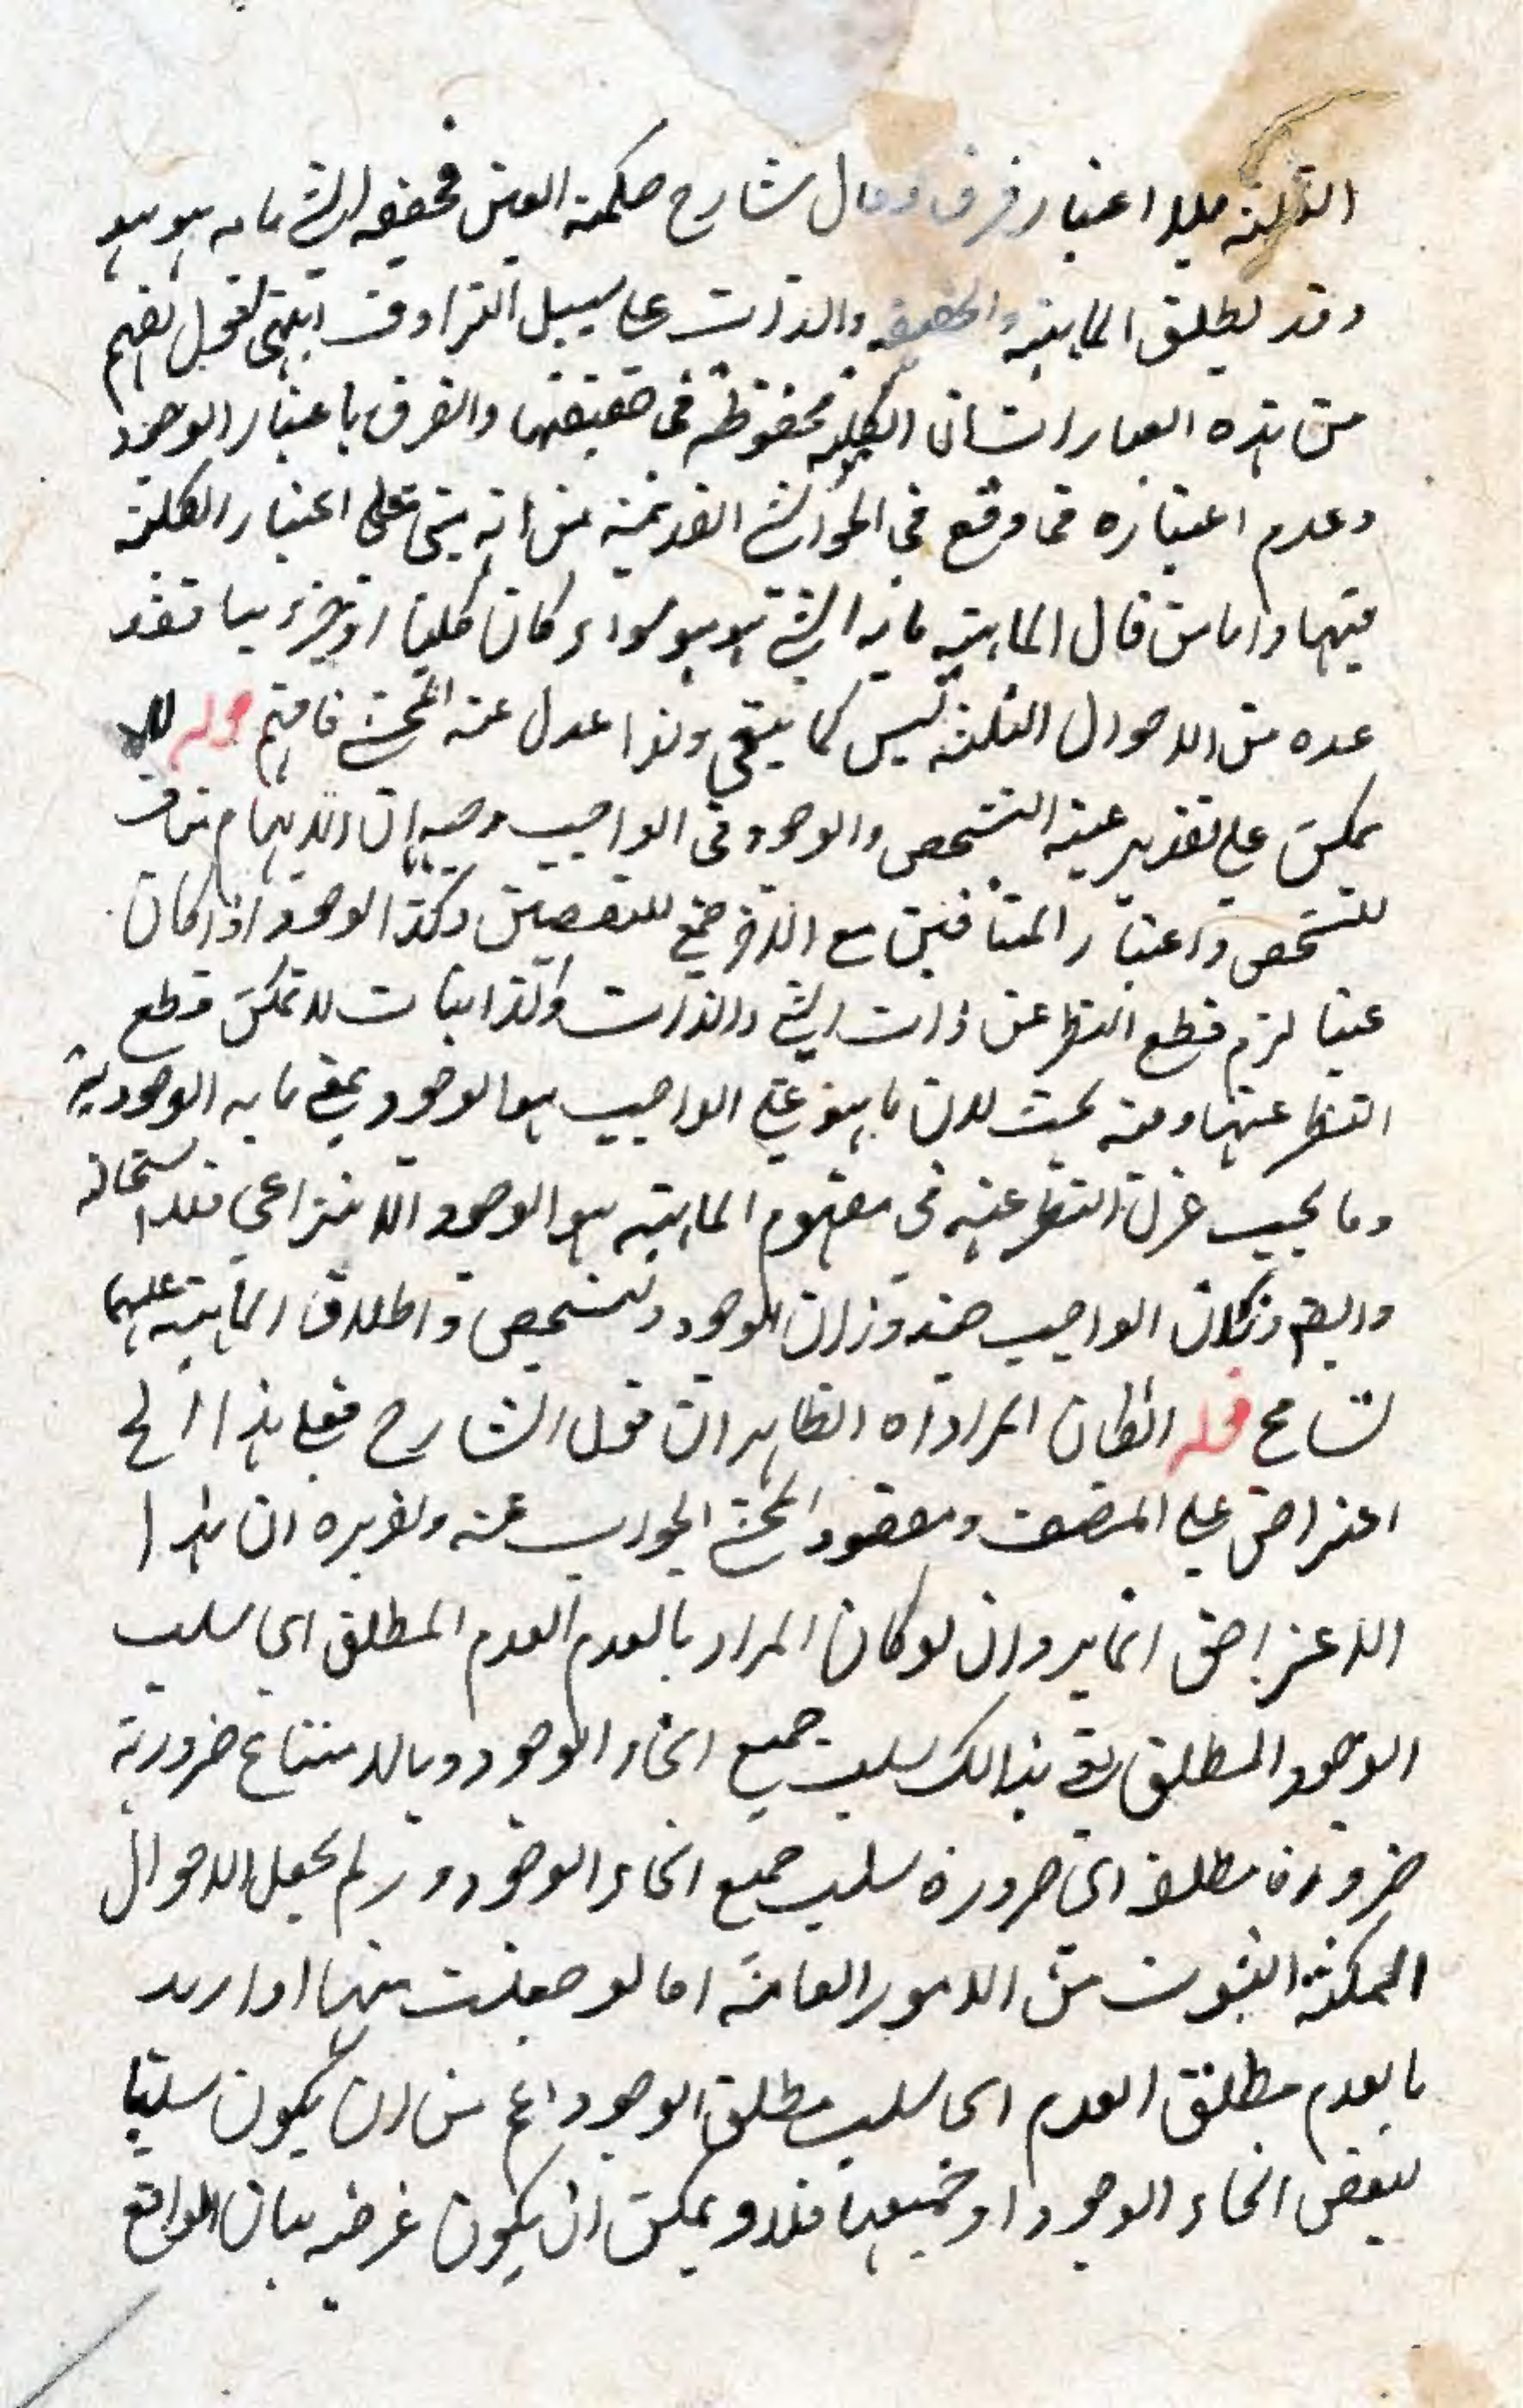 الثلثة بلا اعتبار فرق وقال شارح حكمة العين فحقيقة الشي ما به هو هو
وقد يطلق الماهية والحقيقة والذات على سبيل الترادف انتهى لقول يفهم
من هذه العبارات ان الكلية محفوظة في حقيقتها والفرق باعتبار الوجود
وعدم اعتباره فما وقع في الحواشي القديمة من انه يبتني على اعتبار الكلية
فيها واما من قال الماهية ما به الشي هو هو سواء كان كليا او جزئيا فقد
عده من الاحوال الثلثة ليس كما ينبغي ولذا عدل عنه المحشي فافهم قوله لا
يمكن على تقدير عينية التشخص والوجود في الواجب وجهه ان الابهام مناف
للتشخص واعتبار المتنافيين مع الاخر جمع للنقيضين وكذا الوجود اذا كان
عينا لزم قطع النظر عن ذات الشي والذات والذاتيات لا يمكن قطع
النظر عنها وفيه بحث لان ما هو عين الواجب هو الوجود بمعنى ما به الموجودية
وما يجب عزل النظر عنه في مفهوم الماهية هو الوجود الانتزاعي فلا استحالة
وايضا وان كان الواجب حينئذ وزان الوجود والتشخص واطلاق الماهية عليهما
تسامح قوله ان كان المراد اه الظاهر ان قول الشارح فعلى هذا الخ
اعتراض على المصنف ومقصود المحشي الجواب عنه وتقريره ان هذا
الاعتراض انما يرد ان لو كان المراد بالعدم العدم المطلق اي سلب
الوجود المطلق يعني بذالك سلب جميع انحاء الوجود وبالامتناع ضرورية
ضرورة مطلقة اي ضرورة سلب جميع انحاء الوجود ولم يجعل الاحوال
الممكنة الثبوت من الامور العامة اما لو جعلت منها او اريد
بالعدم مطلق العدم اي سلب مطلق الوجود اعم من ان يكون سلبا
لبعض انحاء الوجود او جميعها فلا ويمكن ان يكون غرضه بيان الواقع